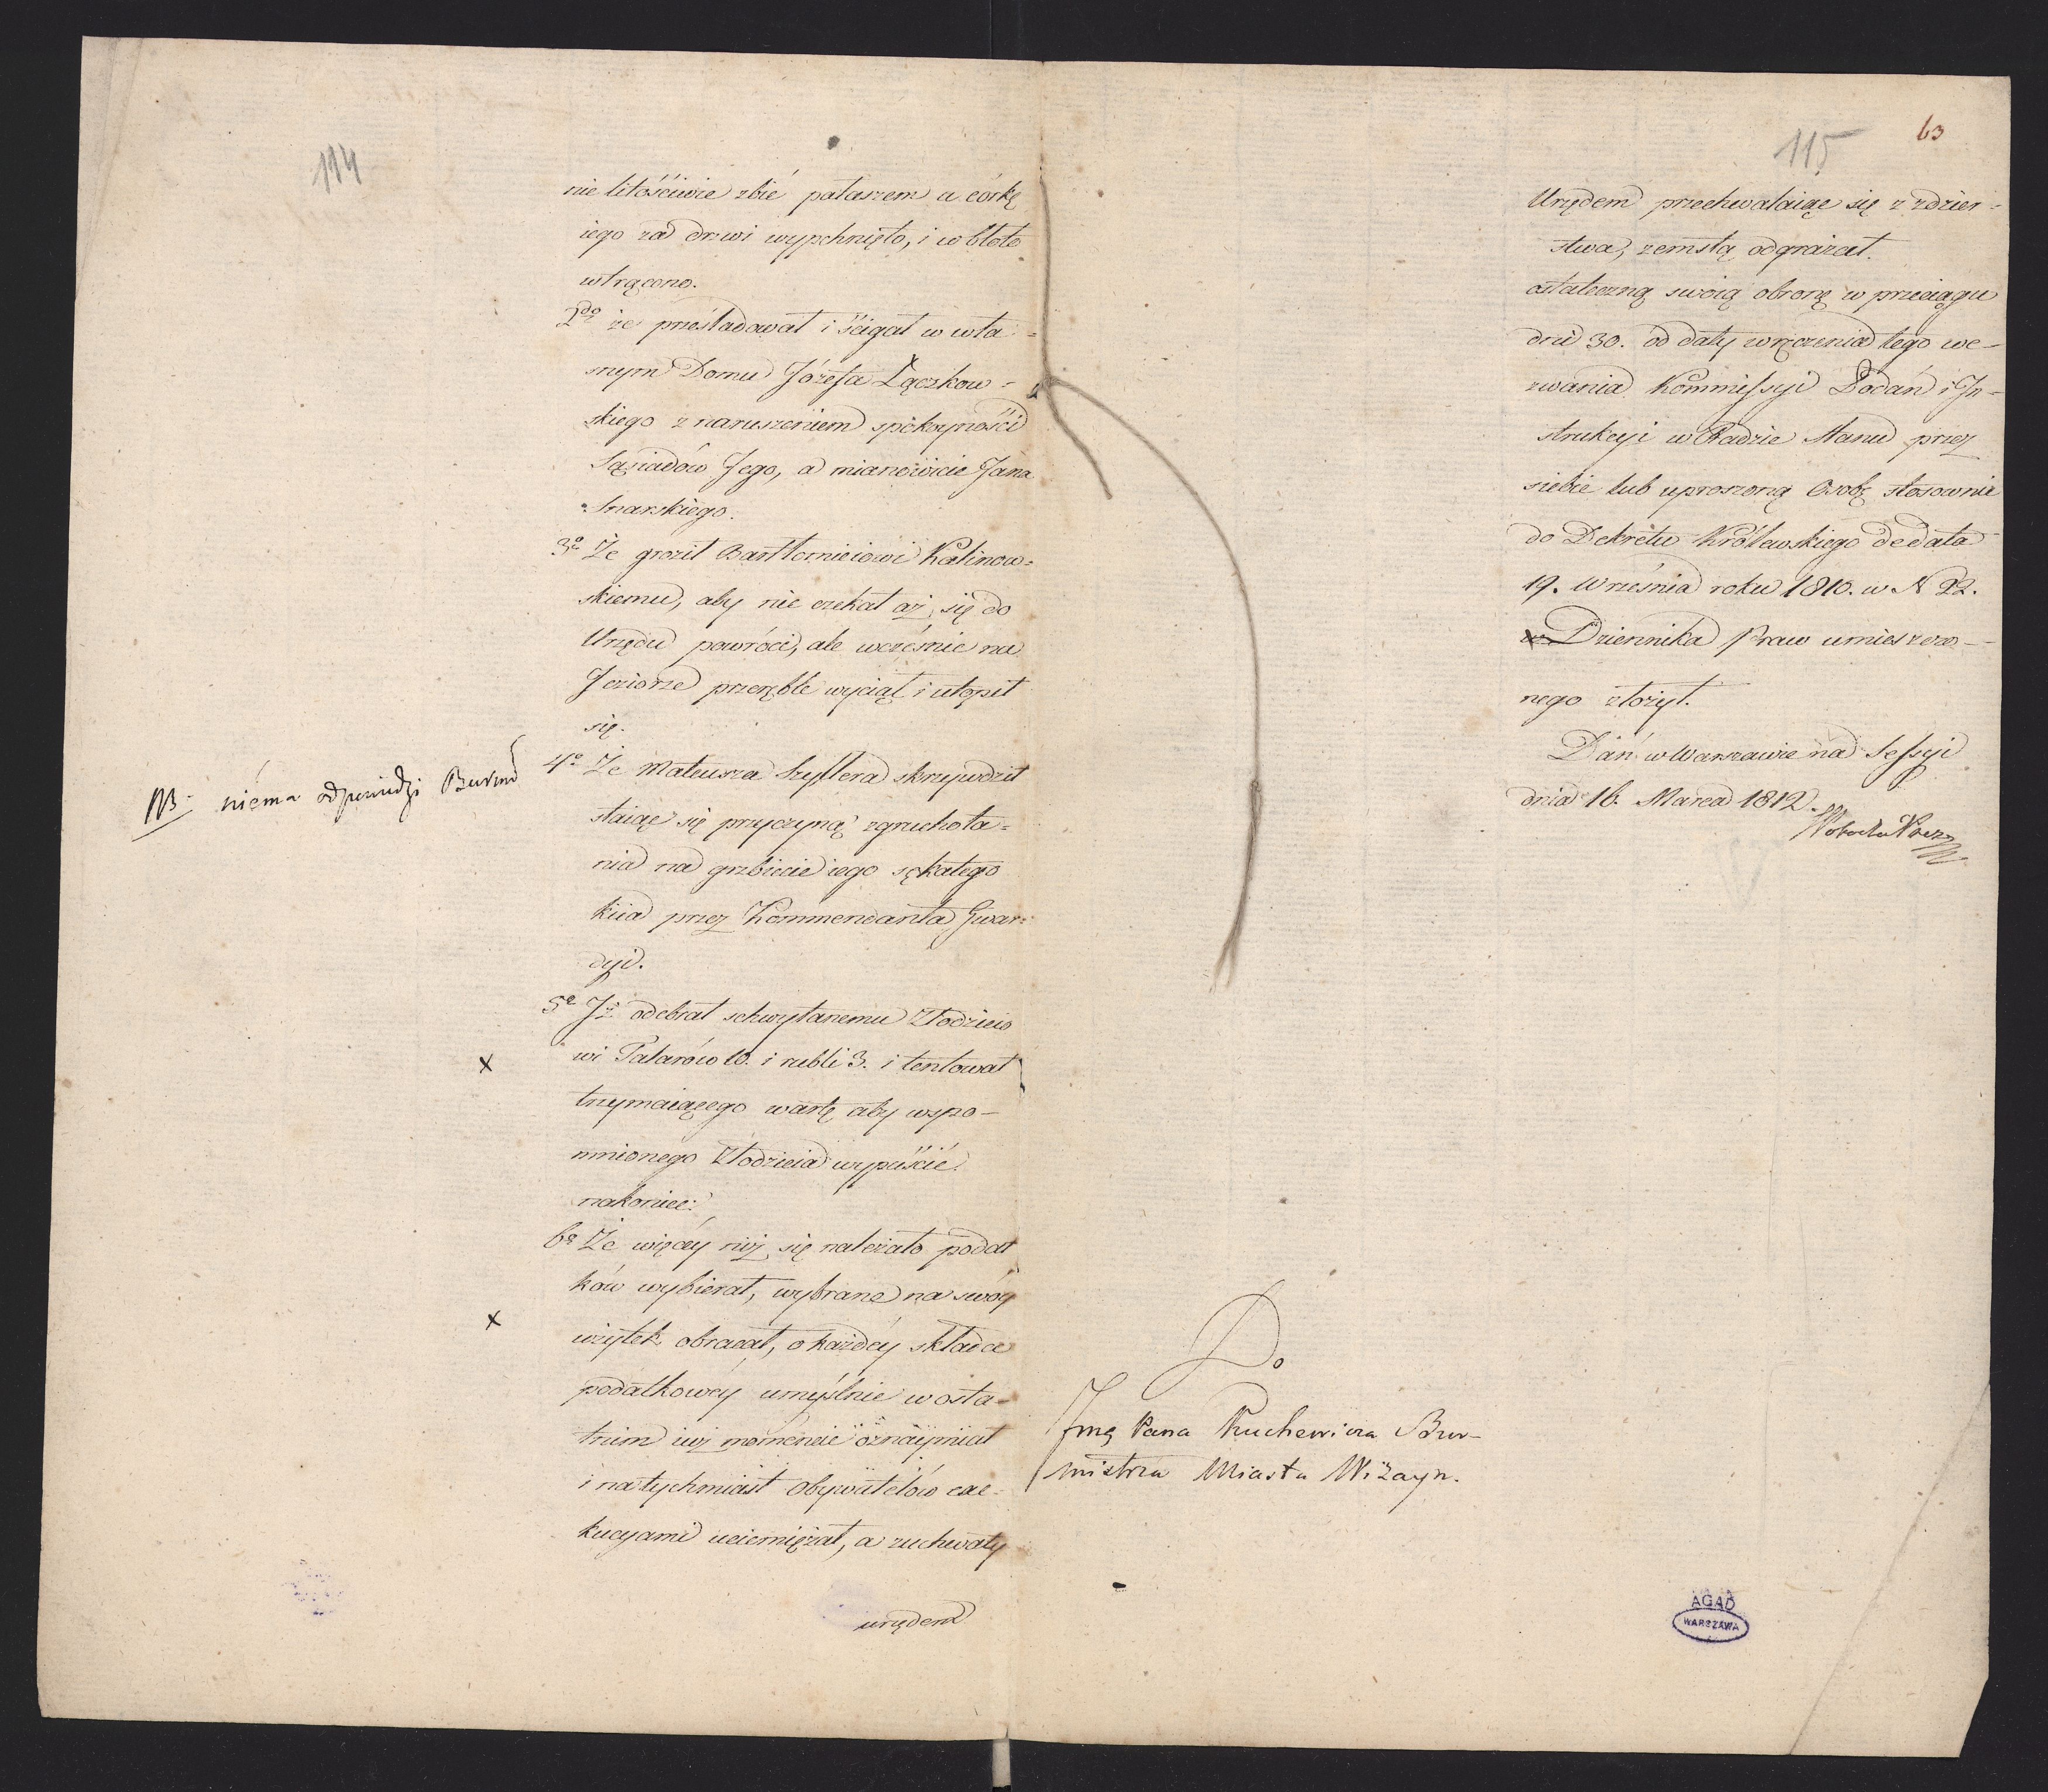 114
nie litościwie zbić pałaszem a córkę
iego za drzwi wypchnięto, i w błoto
wtrącono.
2do że prześladował i ścigał w wła-
snym Domu Józefa Łączkow-
skiego z naruszeniem spokoyności
Sąsiadów Jego, a mianowicie Jana
Snarskiego.
3o Że groził Bartłomieiowi Kalinow-
skiemu, aby nie czekał aż się do
Urzędu powróci, ale wcześnie na
Jeziorze przeręble wyciął i utopił
się.
NB. niéma odpowiedzi Burm
4o Że Mateusza Szyllera skrzywdził
staiąc się przyczyną zgruchota-
nia na grzbiecie iego sękatego
kiia przez Kommendanta Gwar-
dyi.
5o Jż odebrał schwytanemu Złodzieio
x wi Talarów 10. i rubli 3. i tentował
trzymaiącego wartę aby wspo-
mnionego Złodzieia wypuścić.
nakoniec:
6o Że więcéy niż się należało podat
ków wybierał, wybrane na swóy
x użytek obracał, o każdéy składce
podatkowéy umyślnie w osta-
tnim iuż momencie oznaymiał
i natychmiast Obywatelów exe-
kucyami uciemiężał, a zuchwały
urzędem
115
63
Urzędem przechwalaiąc się z zdzier-
stwa, zemstą odgrażał.
ostateczną swoią obronę w przeciągu
dni 30. od daty wręczenia tego we-
zwania Kommissyi Podań i In-
strukcyi w Radzie Stanu przez
siebie lub uproszoną Osobę stosownie
do Dekretu Królewskiego de data
19. Września roku 1810. w N 22.
w Dziennika Praw umieszczo-
nego złożył.
Dan w Warszawie na Sessyi
dnia 16. Marca 1812.
Do
Jmę Pana Puchewicza Bur-
mistrza Miasta Wiżayn.
AGAD
WARSZAWA